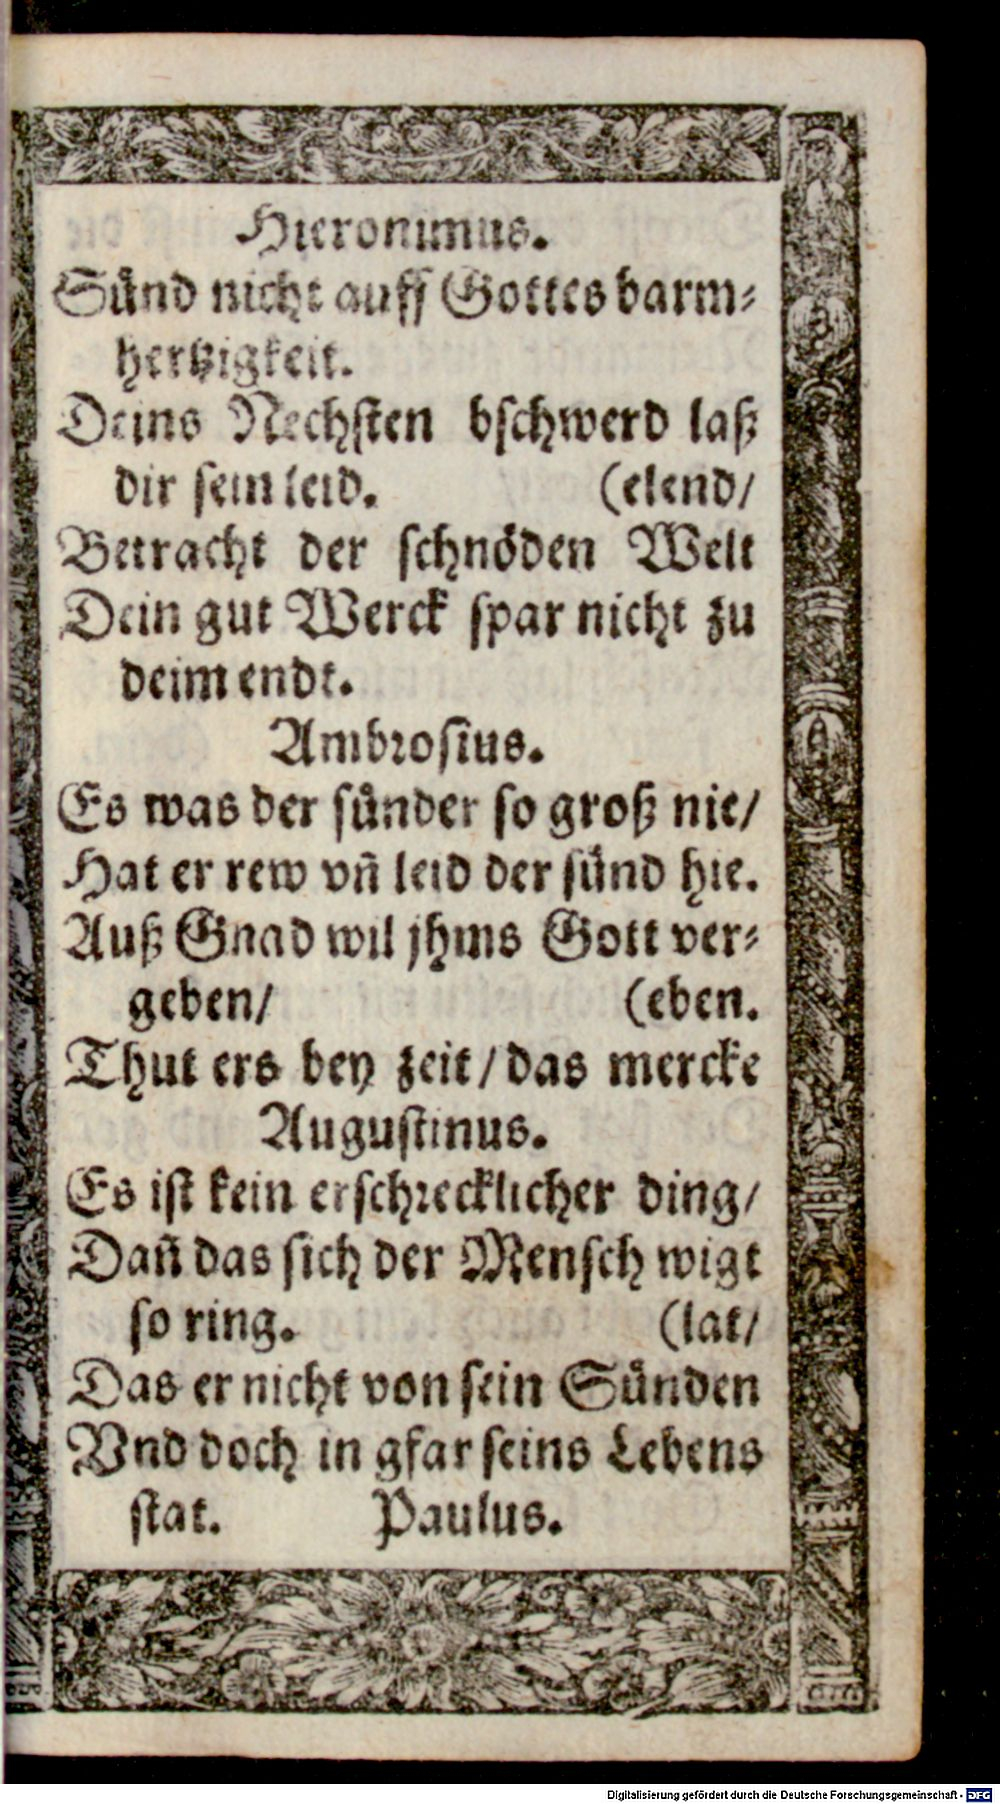 Hieronimus.
Sünd nicht auff Gottes barm⸗
hertzigkeit.
Deins Nechsten bschwerd laß
dir sein leid. (elend/
Betracht der schnöden Welt
Dein gut Werck spar nicht zu
deim endt.
Ambrosius.
Es was der sünder so groß nie/
Hat er rew vn̄ leid der sünd hie.
Auß Gnad wil jhms Gott ver⸗
geben/ (eben.
Thut ers bey zeit/ das mercke
Augustinus.
Es ist kein erschrecklicher ding/
Dan̄ das sich der Mensch wigt
so ring. (lat/
Das er nicht von sein Sünden
Vnd doch in gfar seins Lebens
stat. Paulus.
Digitalisierung gefördert durch die Deutsche Forschungsgemeinschaft - DFG